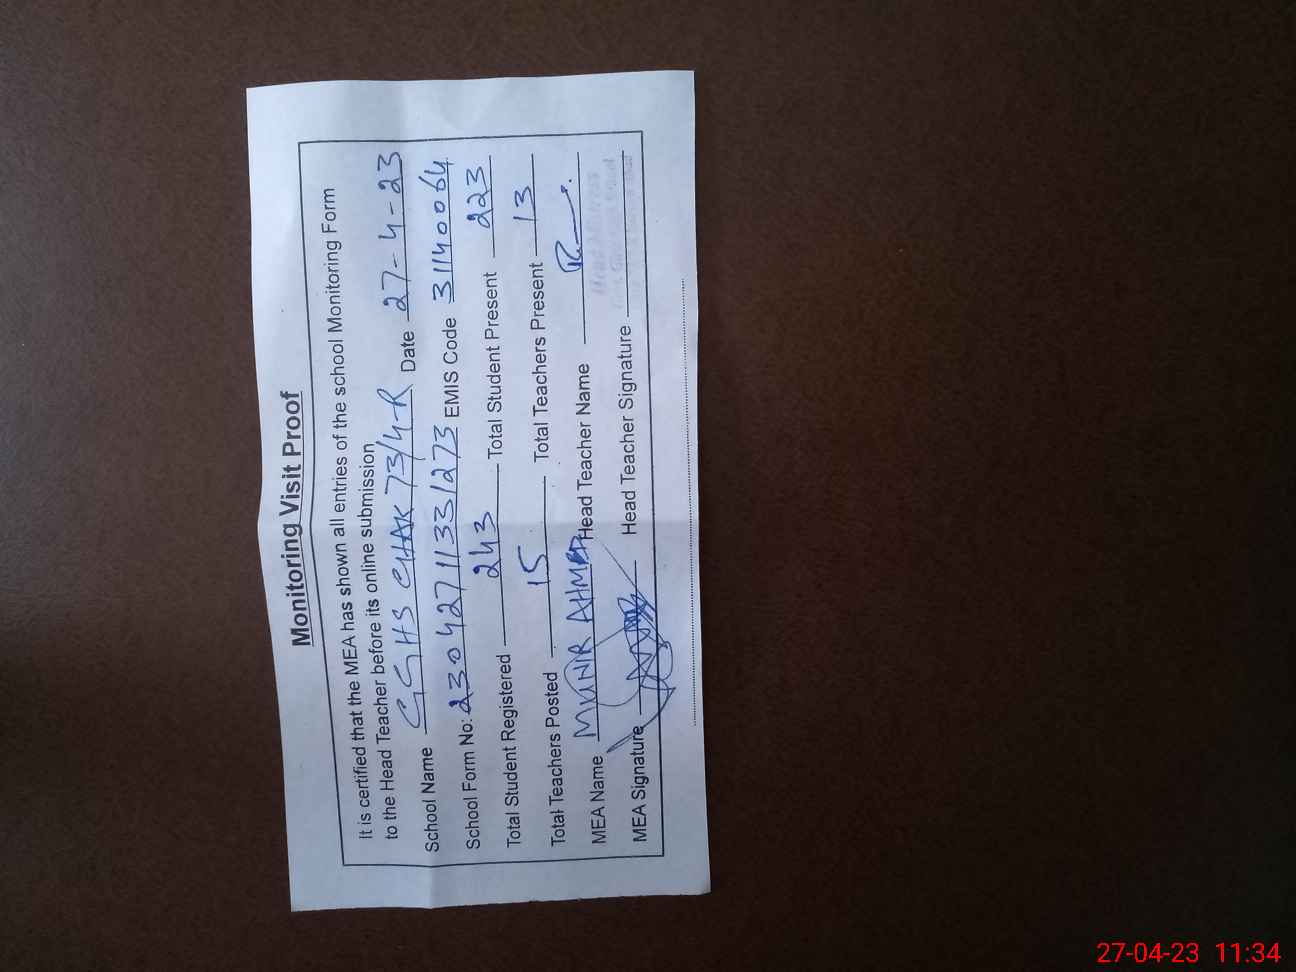 Monitoring Visit Proof
It is certified that the MEA has shown all entries of the school Monitoring Form
to the Head Teacher before its online submission
School Name GGHS CHAK 73/4-R Date 27-4-23
School Form No: 23042711331273 EMIS Code 31140064
Total Student Registered 243 Total Student Present 223
Total Teachers Posted 15 Total Teachers Present 13
MEA Name MUNIR AHMED Head Teacher Name
MEA Signature Head Teacher Signature
Head Mistress
27-04-23 11:34